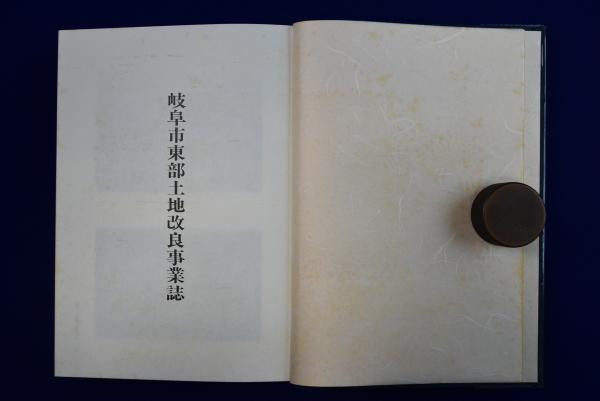 岐阜市東部土地改良事業誌